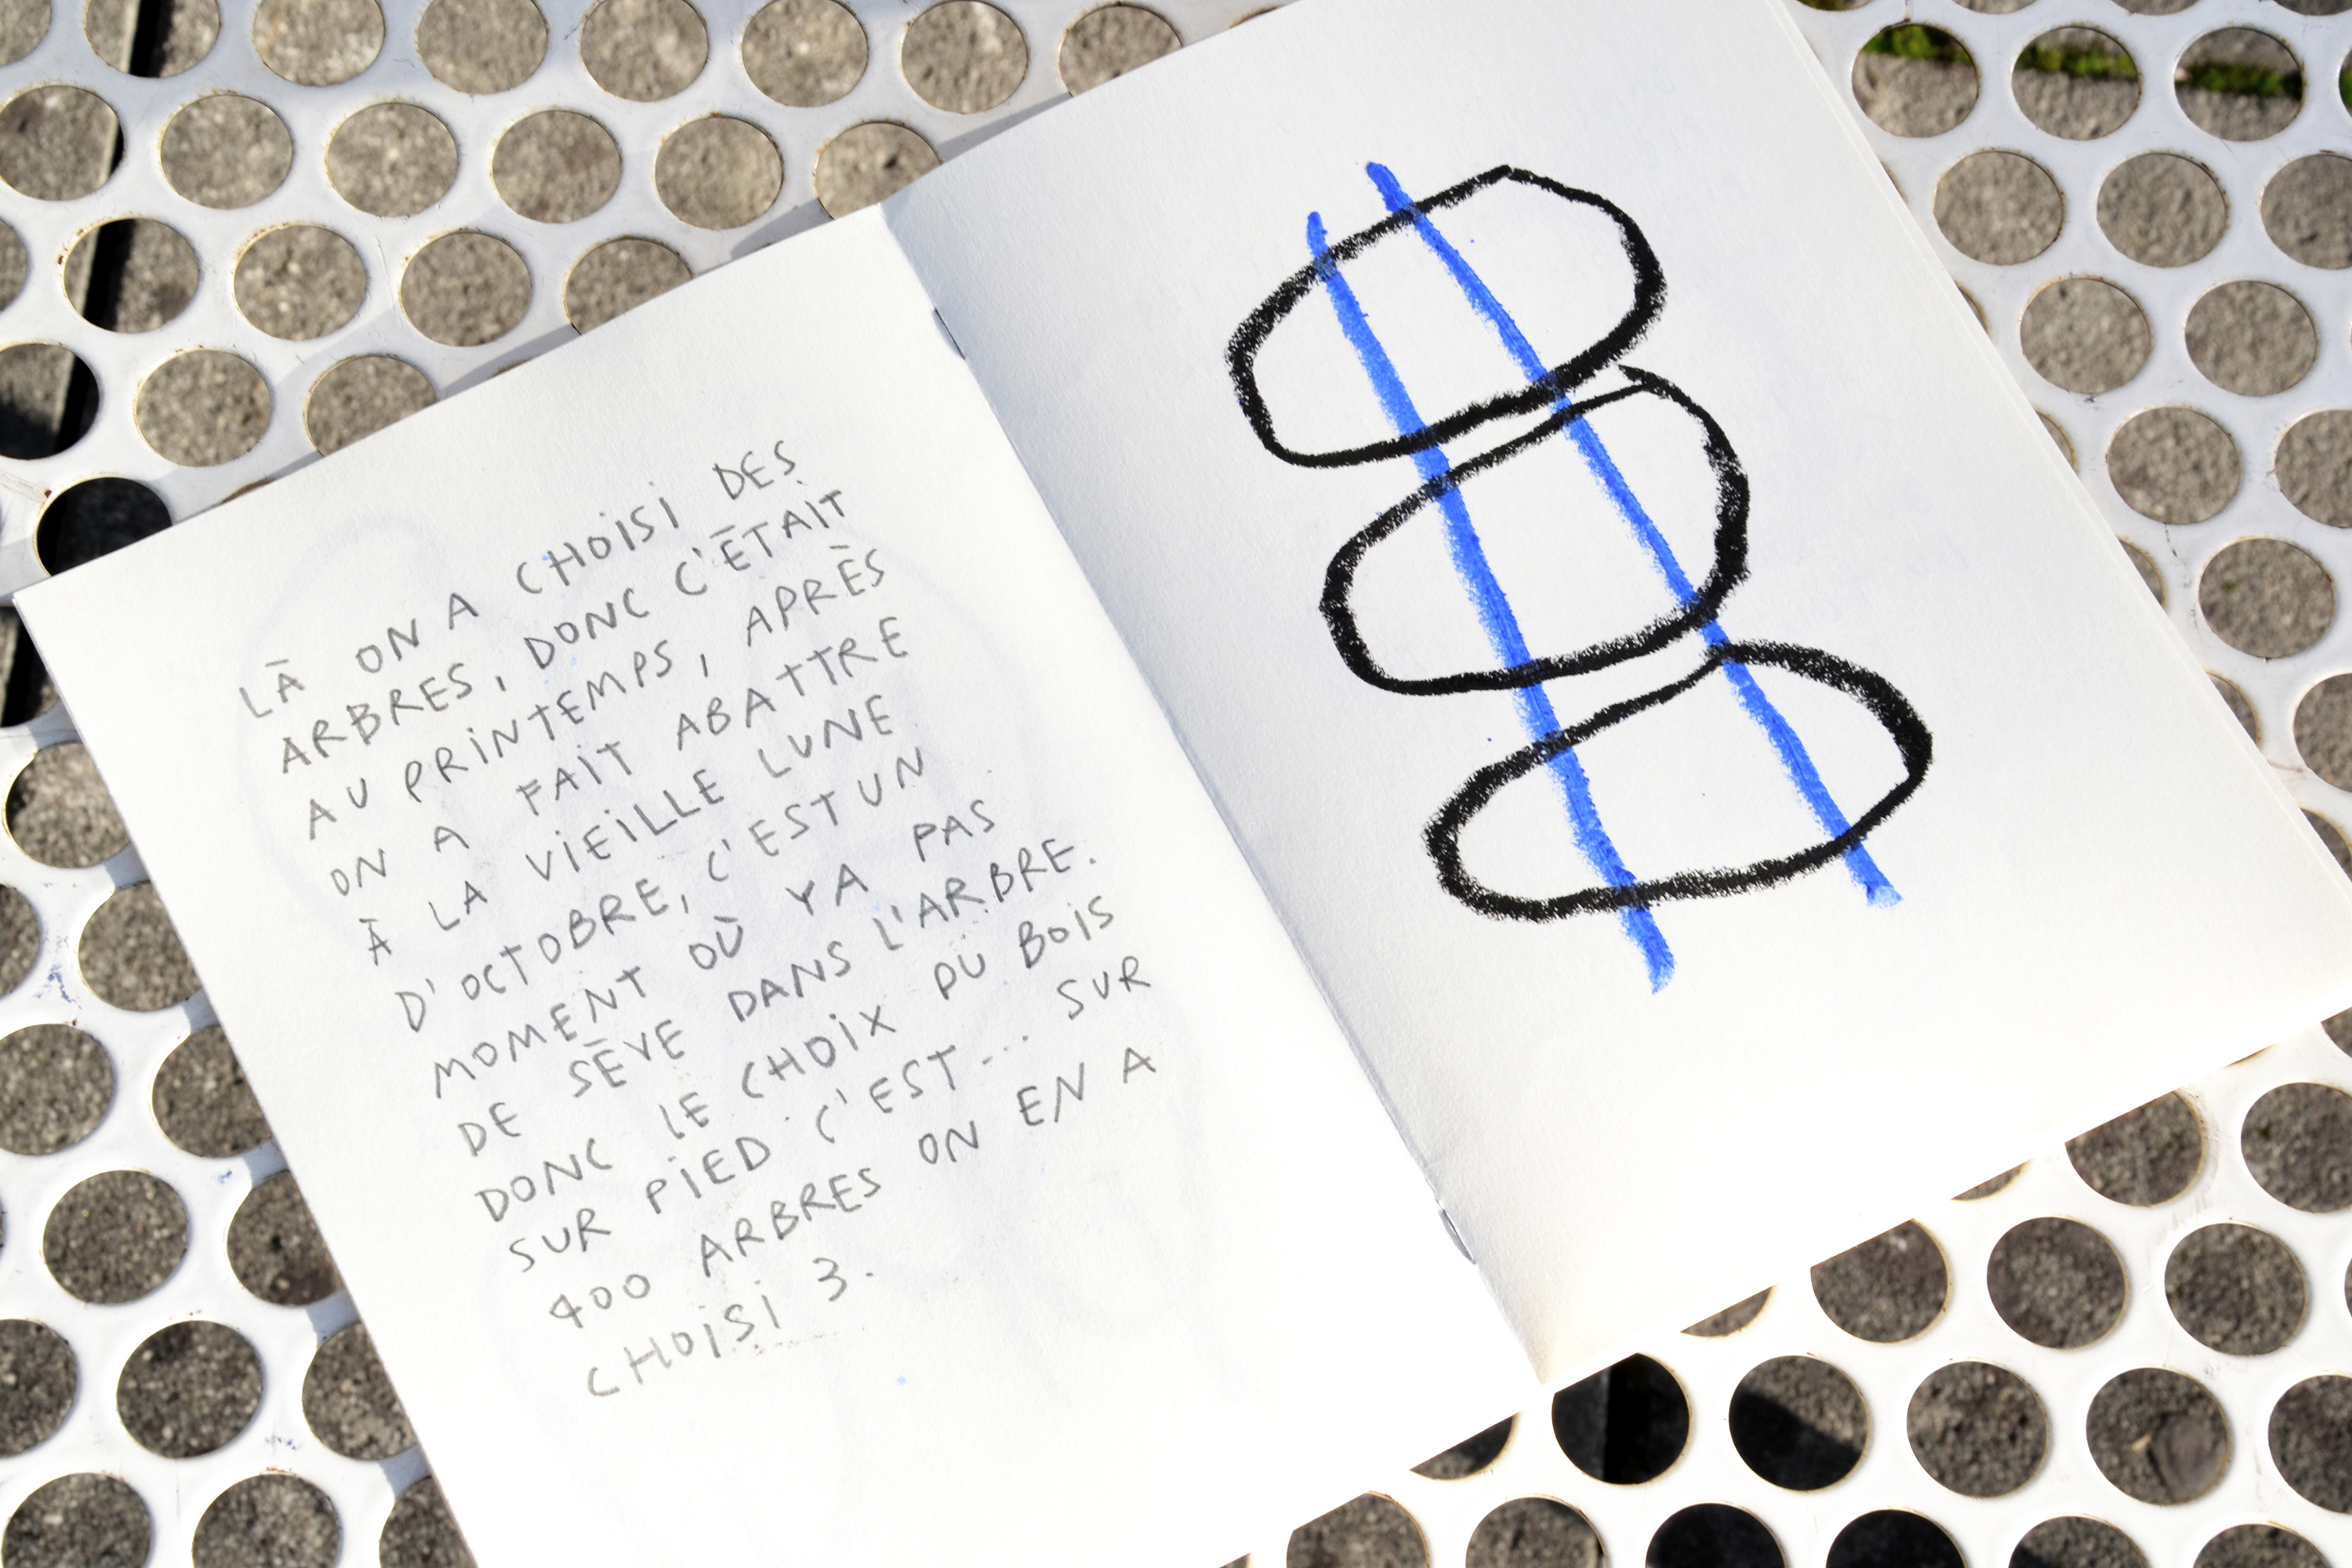 LÀ ON A CHOISI DES
ARBRES, DONC C'ÉTAIT
AU PRINTEMPS, APRÈS
ON A FAIT ABATTRE
À LA VIEILLE LUNE
D'OCTOBRE, C'EST UN
MOMENT OÙ YA PAS
DE SÈVE DANS L'ARBRE.
DONC LE CHOIX DU BOIS
SUR PIED C'EST... SUR
400 ARBRES ON EN A
CHOISI 3.